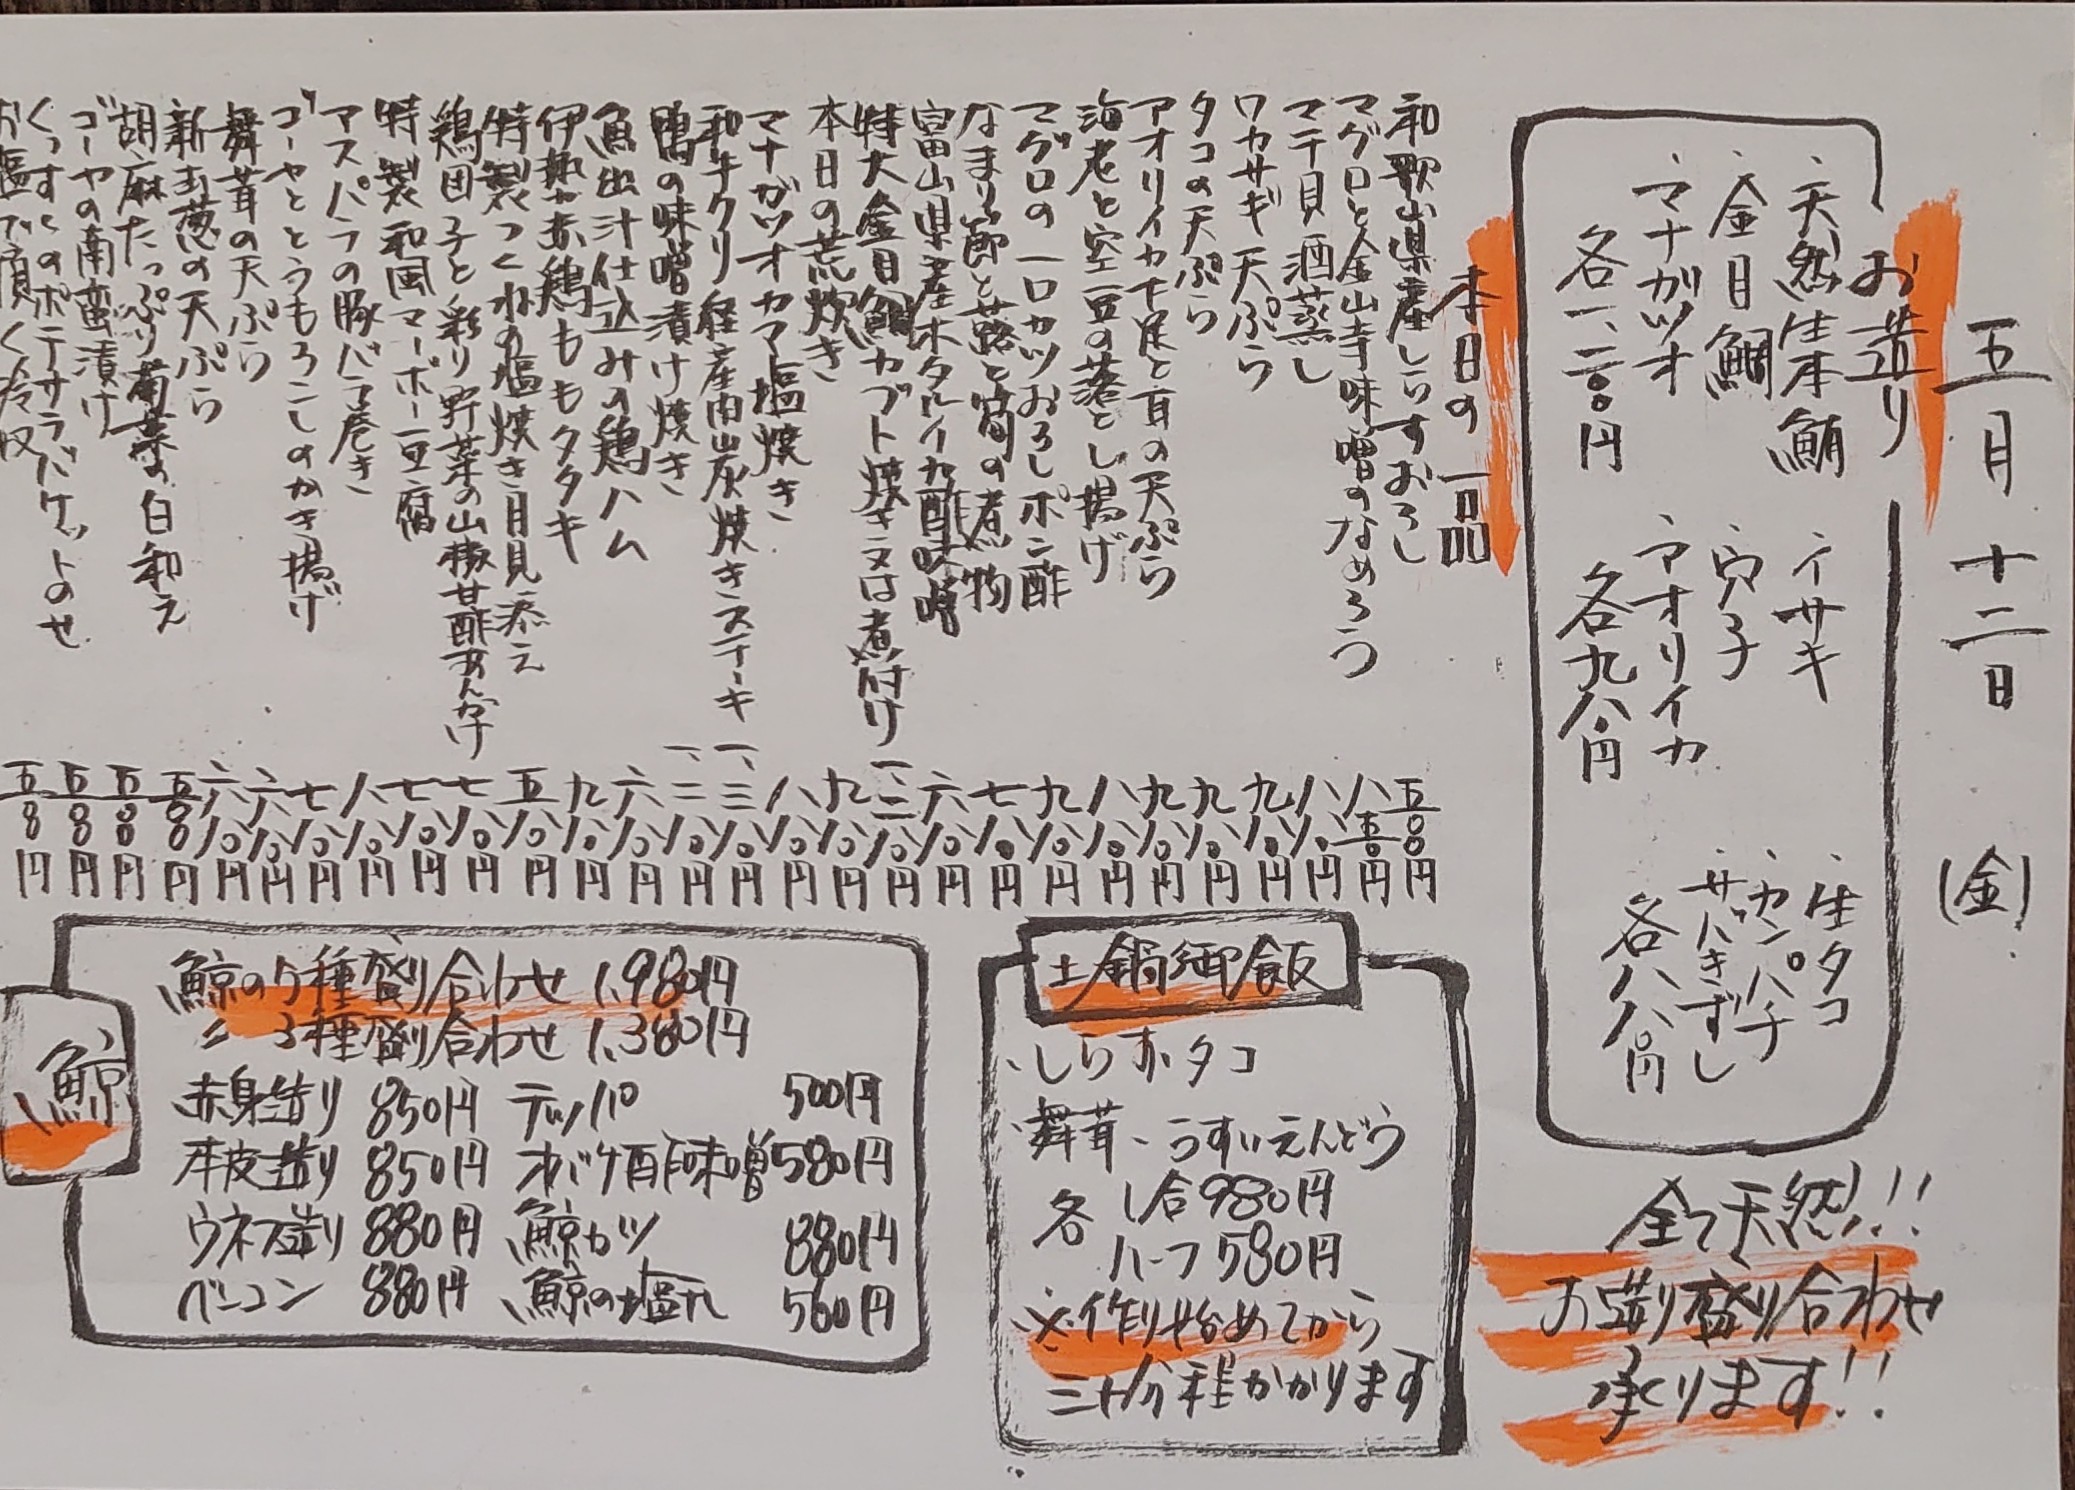 五月十二日（金）
お造り
・天然生本鮪
・金目鯛
・マナガツオ
各一、二八〇円
・イサキ
・穴子
・アオリイカ
各九八〇円
・生タコ
・カンパチ
・サバきずし
各八八〇円
全て天然!!
お造り盛り合わせ
承ります!!
本日の一品
和歌山県産しらすおろし 五八〇円
マグロと金山寺味噌のなめろう 八五〇円
マテ貝酒蒸し 八八〇円
ワカサギ天ぷら 九八〇円
タコの天ぷら 九八〇円
アオリイカ下足と耳の天ぷら 九八〇円
海老と空豆の落とし揚げ 八八〇円
マグロの一口カツおろしポン酢 九八〇円
なまり節と蕗と筍の煮物 七八〇円
富山県産ホタルイカ酢味噌 六八〇円
特大金目鯛カブト焼き又は煮付け 一、二八〇円
本日の荒炊き 九八〇円
マナガツオカマ塩焼き 八八〇円
和牛クリ経産肉炭焼きステーキ 一、三八〇円
鴨の味噌漬け焼き 一、三八〇円
魚出汁仕込みの鶏ハム 六八〇円
伊勢赤鶏ももタタキ 九八〇円
特製つくねの塩焼き月見添え 五八〇円
鶏団子と彩り野菜の山椒甘酢あんかけ 七八〇円
特製和風マーボー豆腐 七八〇円
アスパラの豚バラ巻き 八八〇円
ゴーヤととうもろこしのかき揚げ 七八〇円
舞茸の天ぷら 六八〇円
新玉葱の天ぷら 六八〇円
胡麻たっぷり菊菜の白和え 五八〇円
ゴーヤの南蛮漬け 五八〇円
くっすくのポテサラバケットのせ 五八〇円
お塩で頂く冷奴 五八〇円
土鍋御飯
・しらす・タコ
・舞茸・うすいえんどう
各 1合980円
ハーフ580円
※作り始めてから
三十分程かかります
鯨
鯨の5種盛り合わせ 1,980円
〃 3種盛り合わせ 1,380円
赤身造り 850円 テッパ 500円
本皮造り 850円 オバケ酢味噌 580円
ウネス造り 880円 鯨カツ 880円
ベーコン 880円 鯨の塩丸 560円